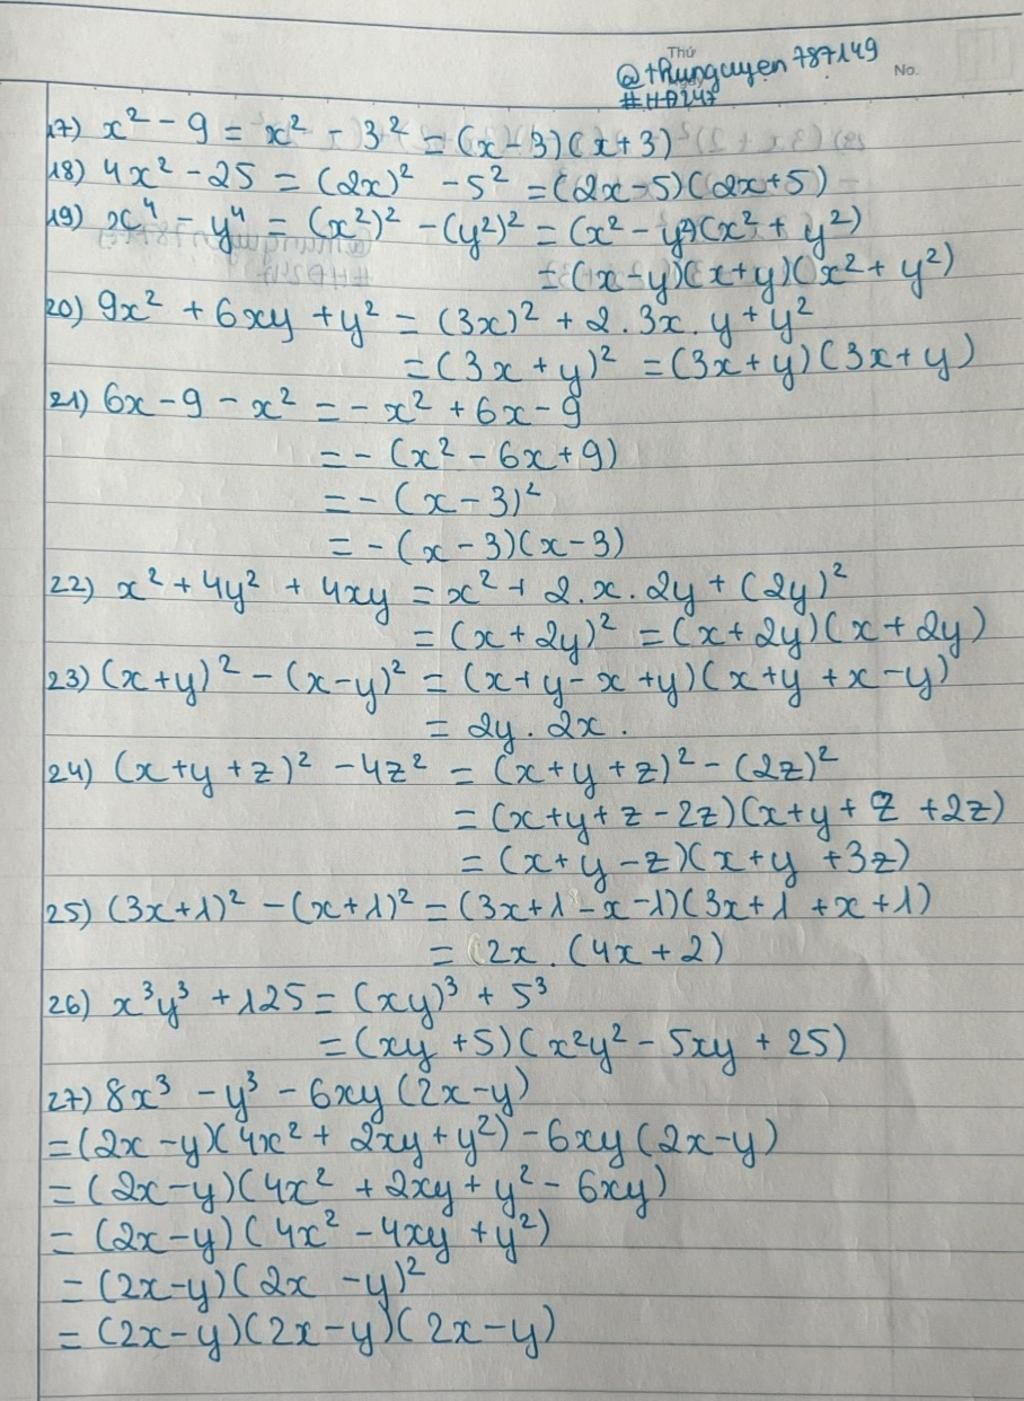 Thứ
@thunguyen787149
No.
#HĐ247
17) x² - 9 = x² - 3² = (x-3)(x+3)
18) 4x² - 25 = (2x)² - 5² = (2x-5)(2x+5)
19) x⁴ - y⁴ = (x²)² - (y²)² = (x² - y²)(x² + y²)
= (x-y)(x+y)(x² + y²)
20) 9x² + 6xy + y² = (3x)² + 2.3x.y + y²
= (3x + y)² = (3x+y)(3x+y)
21) 6x - 9 - x² = - x² + 6x - 9
= - (x² - 6x + 9)
= - (x - 3)²
= - (x - 3)(x - 3)
22) x² + 4y² + 4xy = x² + 2.x.2y + (2y)²
= (x + 2y)² = (x+2y)(x+2y)
23) (x+y)² - (x-y)² = (x+y-x+y)(x+y+x-y)
= 2y.2x.
24) (x+y+z)² - 4z² = (x+y+z)² - (2z)²
= (x+y+z-2z)(x+y+z+2z)
= (x+y-z)(x+y+3z)
25) (3x+1)² - (x+1)² = (3x+1-x-1)(3x+1+x+1)
= 2x.(4x+2)
26) x³y³ + 125 = (xy)³ + 5³
= (xy+5)(x²y² - 5xy + 25)
27) 8x³ - y³ - 6xy(2x-y)
= (2x-y)(4x² + 2xy + y²) - 6xy(2x-y)
= (2x-y)(4x² + 2xy + y² - 6xy)
= (2x-y)(4x² - 4xy + y²)
= (2x-y)(2x-y)²
= (2x-y)(2x-y)(2x-y)